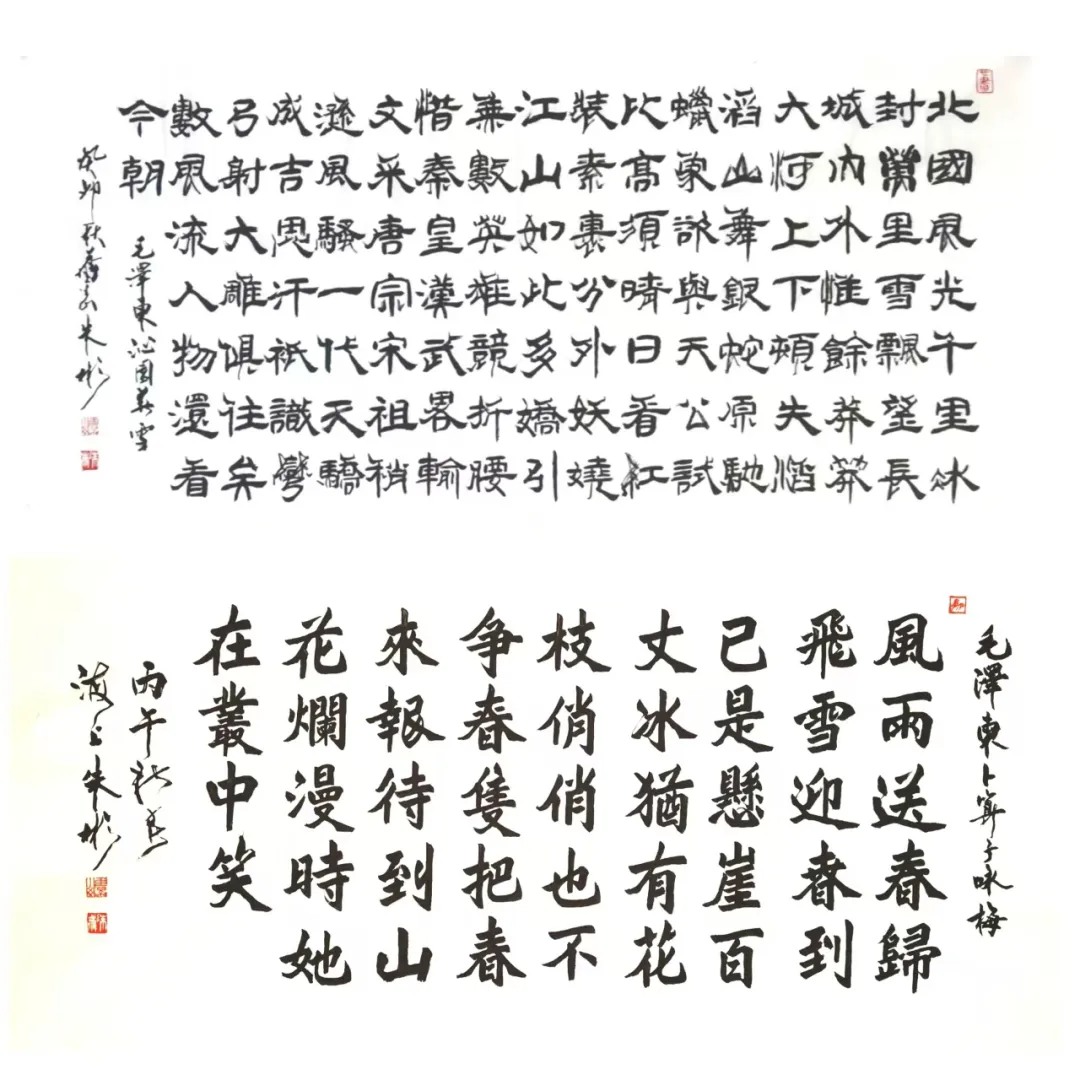 北國風光千里冰
封萬里雪飄望長
城內外惟餘莽莽
大河上下頓失滔
滔山舞銀蛇原馳
蠟象欲與天公試
比高須晴日看紅
裝素裹分外妖嬈
江山如此多嬌引
無數英雄競折腰
惜秦皇漢武畧輸
文采唐宗宋祖稍
遜風騷一代天驕
成吉思汗祇識彎
弓射大雕俱往矣
數風流人物還看
今朝
毛澤東沁園春雪
癸卯秋朱彬
毛澤東卜算子咏梅
風雨送春歸
飛雪迎春到
已是懸崖百
丈冰猶有花
枝俏俏也不
争春隻把春
來報待到山
花爛漫時她
在叢中笑
丙午新春
滬上朱彬